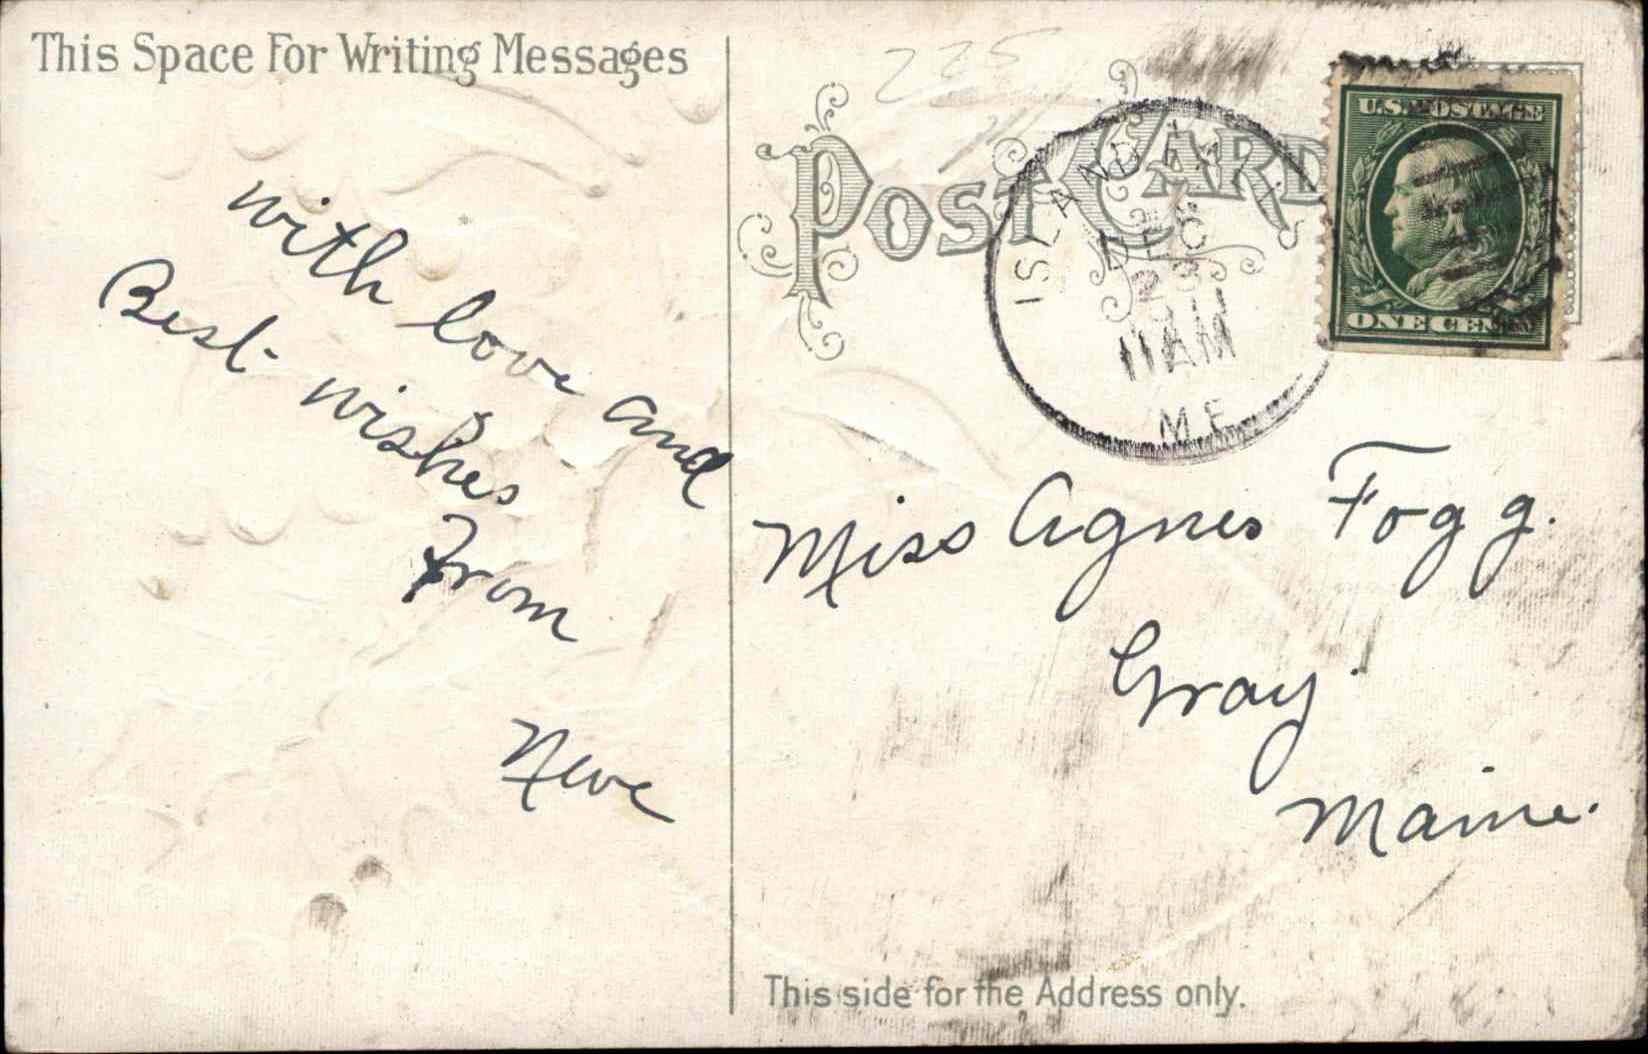 This Space For Writing Messages
with love and
Best wishes
From
Neve
225
POST CARD
ISLAND
DEC
23
11 AM
ME.
U.S. POSTAGE
ONE CENT
Miss Agnes Fogg.
Gray
Maine.
This side for the Address only.